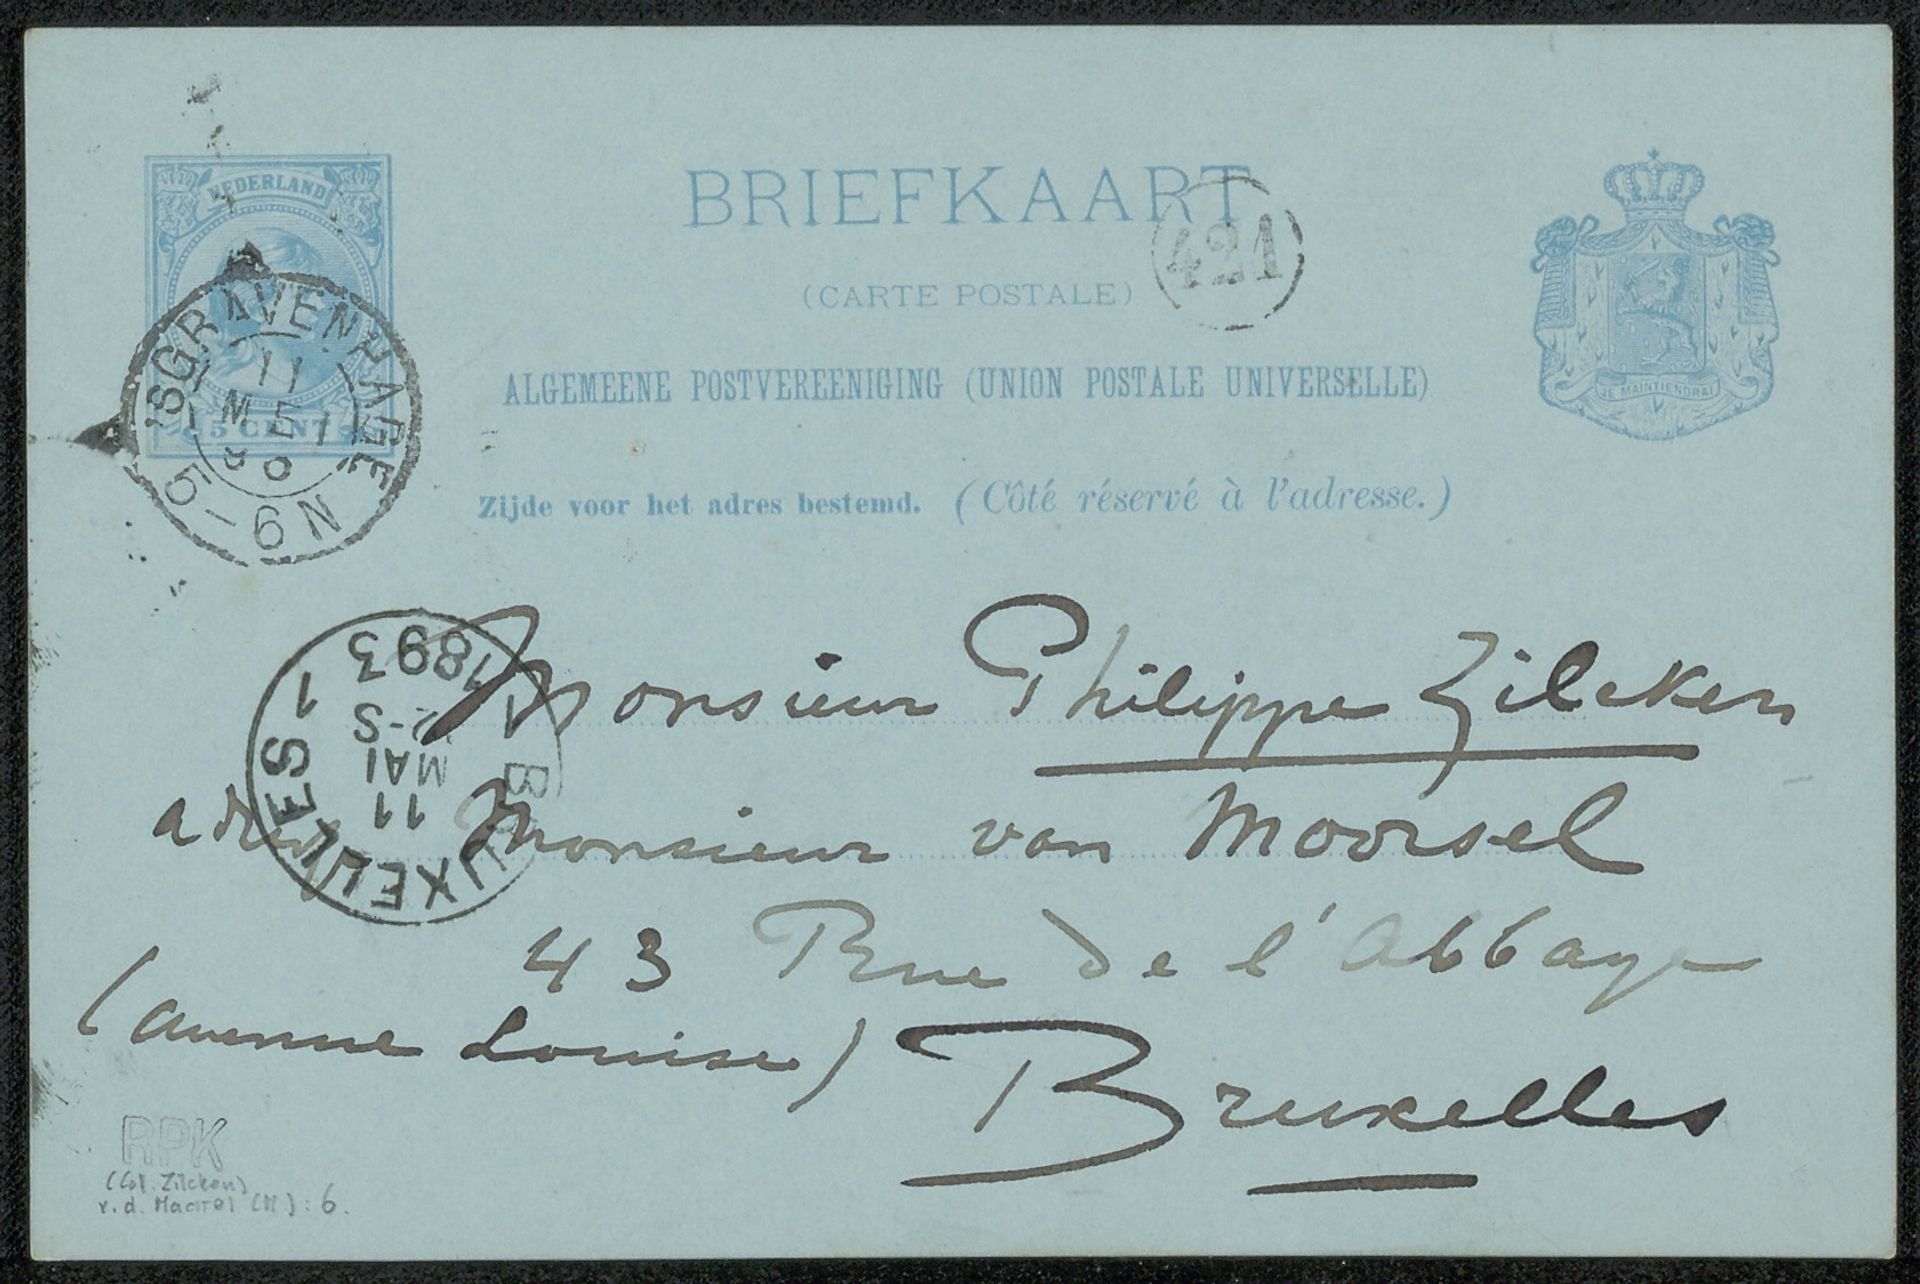 BRIEFKAART
421
(CARTE POSTALE)
ALGEMEENE POSTVEREENIGING (UNION POSTALE UNIVERSELLE)
Zijde voor het adres bestemd. (Côté réservé à l'adresse.)
NEDERLAND
5 CENT
'SGRAVENHAGE
11
MEI
5-6N
JE MAINTIENDRAI
1 BRUXELLES 1
11
MAI
-S
1893
Monsieur Philippe Zilcken
Monsieur van Moorsel
43 Rue de l'Abbaye
(avenue Louise) Bruxelles
RPK
(Col. Zilcken)
v. d. (M): 6.